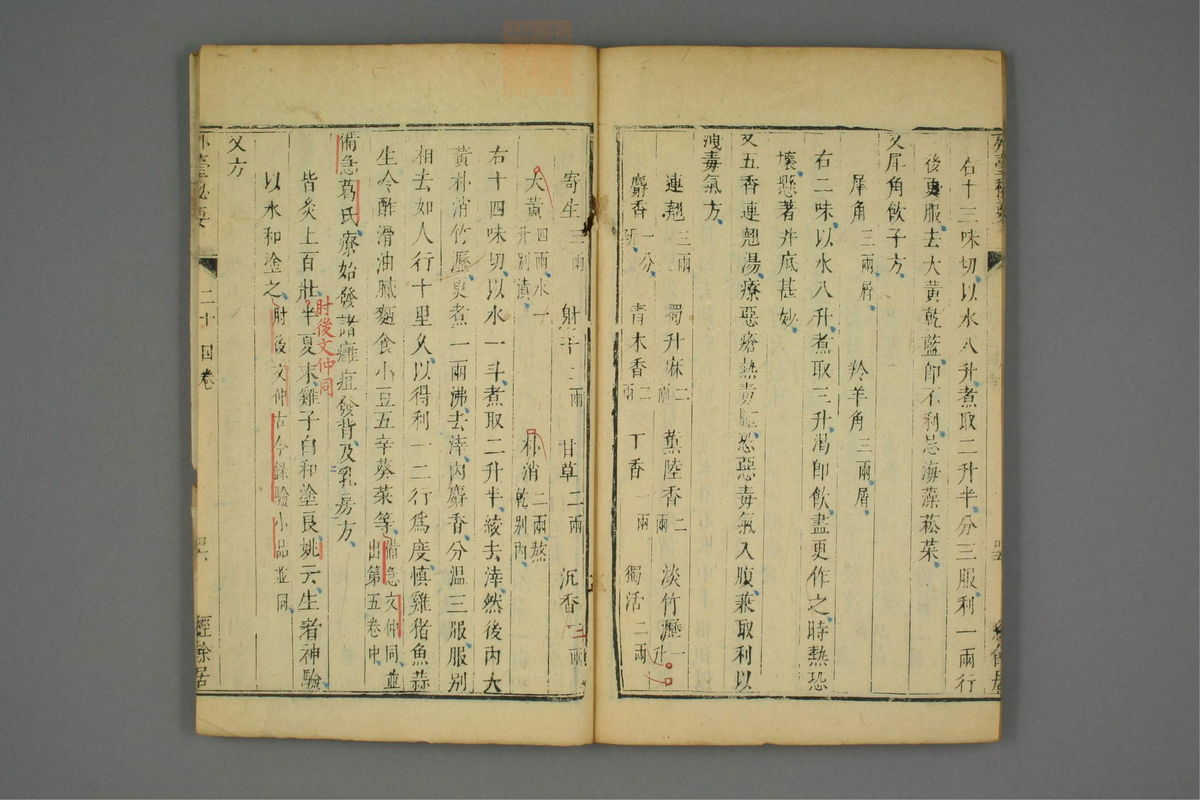 右十三味切以水八升煮取二升半分三服利一兩行
後更服去大黃乾藍卽不利忌海藻菘菜
又犀角飲子方
犀角三兩屑 羚羊角三兩屑
右二味以水八升煮取三升渴卽飲盡更作之時熱恐
壞懸著井底甚妙
又五香連翹湯療惡瘡熱毒腫恐惡毒氣入腹兼取利以
洩毒氣方
連翹三兩 蜀升麻二兩 薰陸香二兩 淡竹瀝一升
麝香一分研 青木香二兩 丁香一兩 獨活二兩
寄生三兩 射干二兩 甘草二兩 沉香二兩
大黃四兩水一升別漬 朴消二兩熬乾別內
右十四味切以水一斗煮取二升半綾去滓然後內大
黃朴消竹瀝更煮一兩沸去滓內麝香分溫三服服別
相去如人行十里久以得利一二行爲度慎雞猪魚蒜
生冷酢滑油膩麵食小豆五辛葵菜等備急文仲同並出第五卷中
備急葛氏療始發諸癰疽發背及乳房方
皆灸上百壯半夏末雞子白和塗良姚云生者神驗
肘後文仲同
以水和塗之肘後文仲古今錄驗小品並同
又方
外臺秘要 二十四卷 經餘居